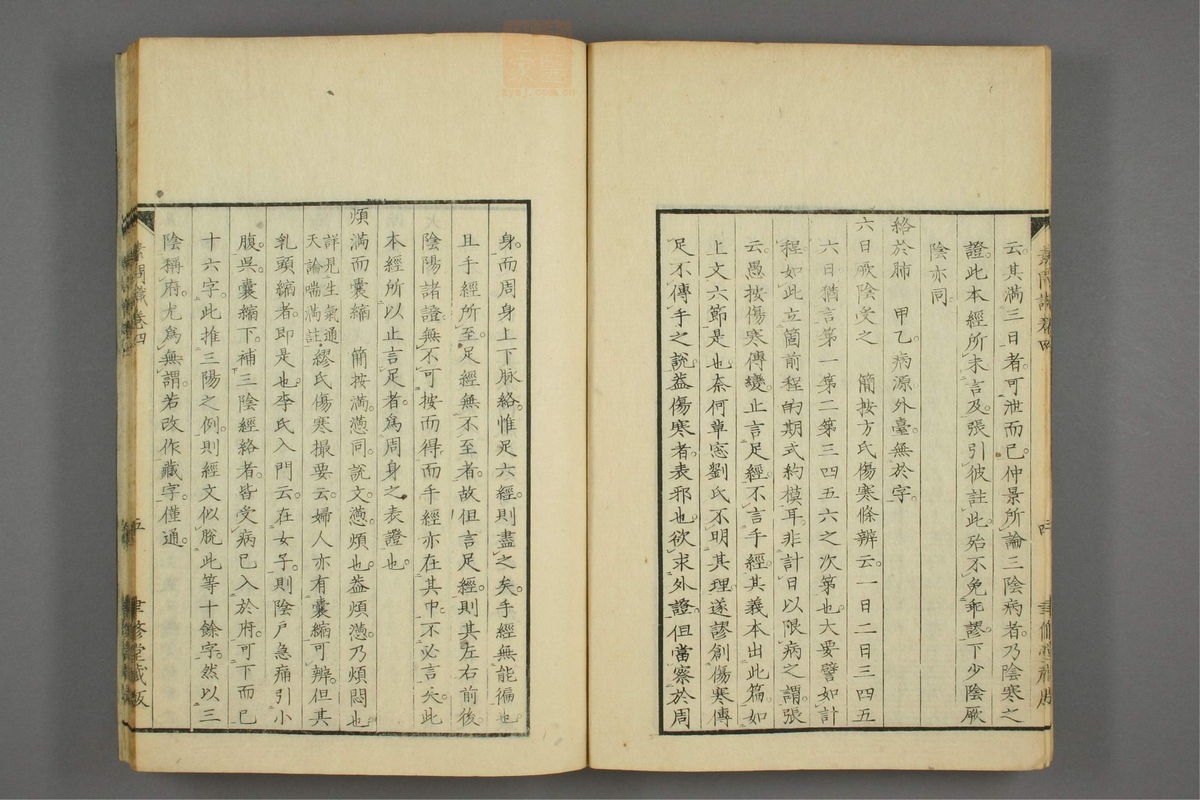 云其滿三日者可泄而已仲景所論三陰病者乃陰寒之
證此本經所未言及張引彼註此殆不免乖謬下少陰厥
陰亦同
絡於肺 甲乙病源外臺無於字
六日厥陰受之 簡按方氏傷寒條辨云一日二日三四五
六日猶言第一第二第三四五六之次第也大要譬如計
程如此立箇前程的期式約模耳非計日以限病之謂張
云愚按傷寒傳變止言足經不言手經其義本出此篇如
上文六節是也奈何草窓劉氏不明其理遂謬創傷寒傳
足不傳手之說葢傷寒者表邪也欲求外證但當察於周
素問識卷四
聿修堂藏版
身而周身上下脉絡惟足六經則盡之矣手經無能徧也
且手經所至足經無不至者故但言足經則其左右前後
陰陽諸證無不可按而得而手經亦在其中不必言矣此
本經所以止言足者爲周身之表證也
煩滿而囊縮 簡按滿懣同說文懣煩也葢煩懣乃煩悶也
詳見生氣通
天論喘滿註
繆氏傷寒撮要云婦人亦有囊縮可辨但其
乳頭縮者即是也李氏入門云在女子則陰戶急痛引小
腹吳囊縮下補三陰經絡者皆受病已入於府可下而已
十六字此推三陽之例則經文似脫此等十餘字然以三
陰稱府尤爲無謂若改作藏字僅通
素問識卷四
五
聿修堂藏版